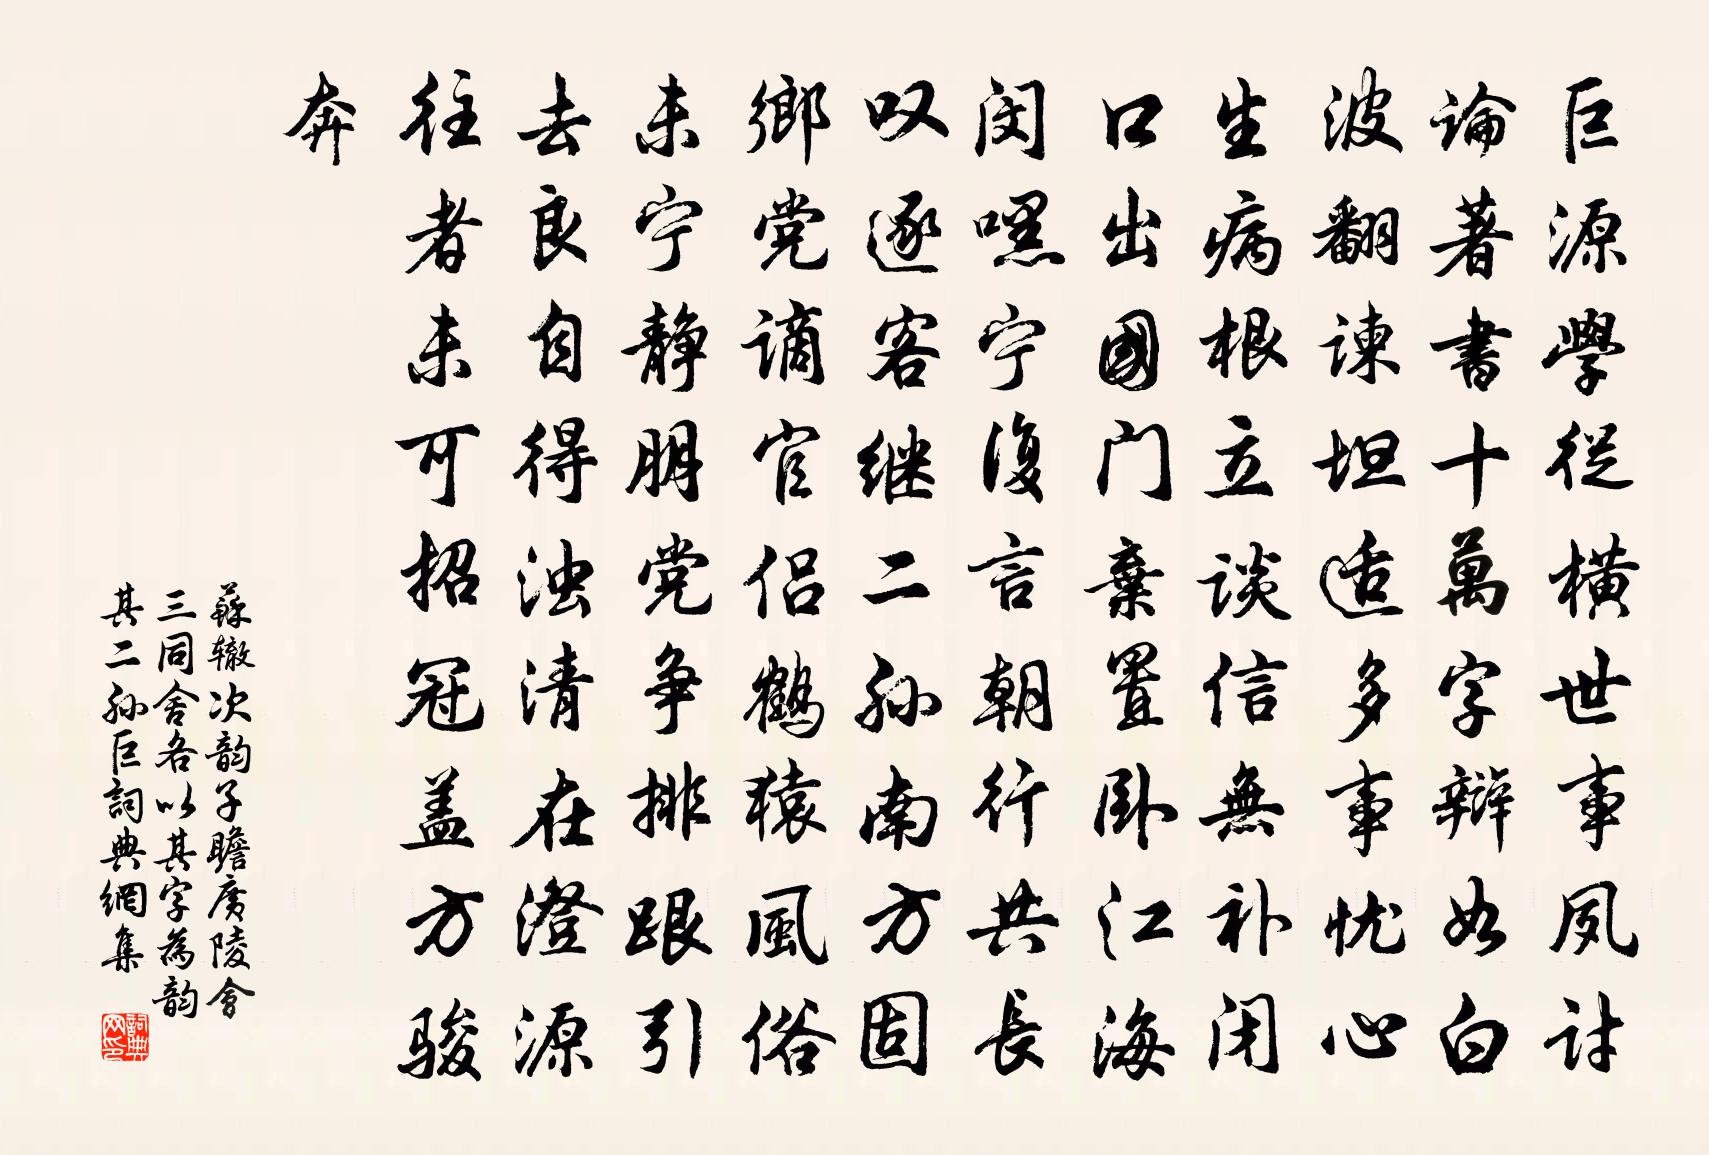 巨源學從橫世事夙討
論著書十萬字辯如白
波翻諫坦适多事忧心
生病根立談信無补闭
口出國门棄置卧江海
闵嘿宁復言朝行共長
叹逐客继二孙南方固
鄉党谪官侣鹤猿風俗
未宁静朋党争排跟引
去良自得浊清在澄源
往者未可招冠盖方骏
奔
蘇辙次韵子瞻廣陵會
三同舍各以其字為韵
其二孙巨詞典網集
詞典网印